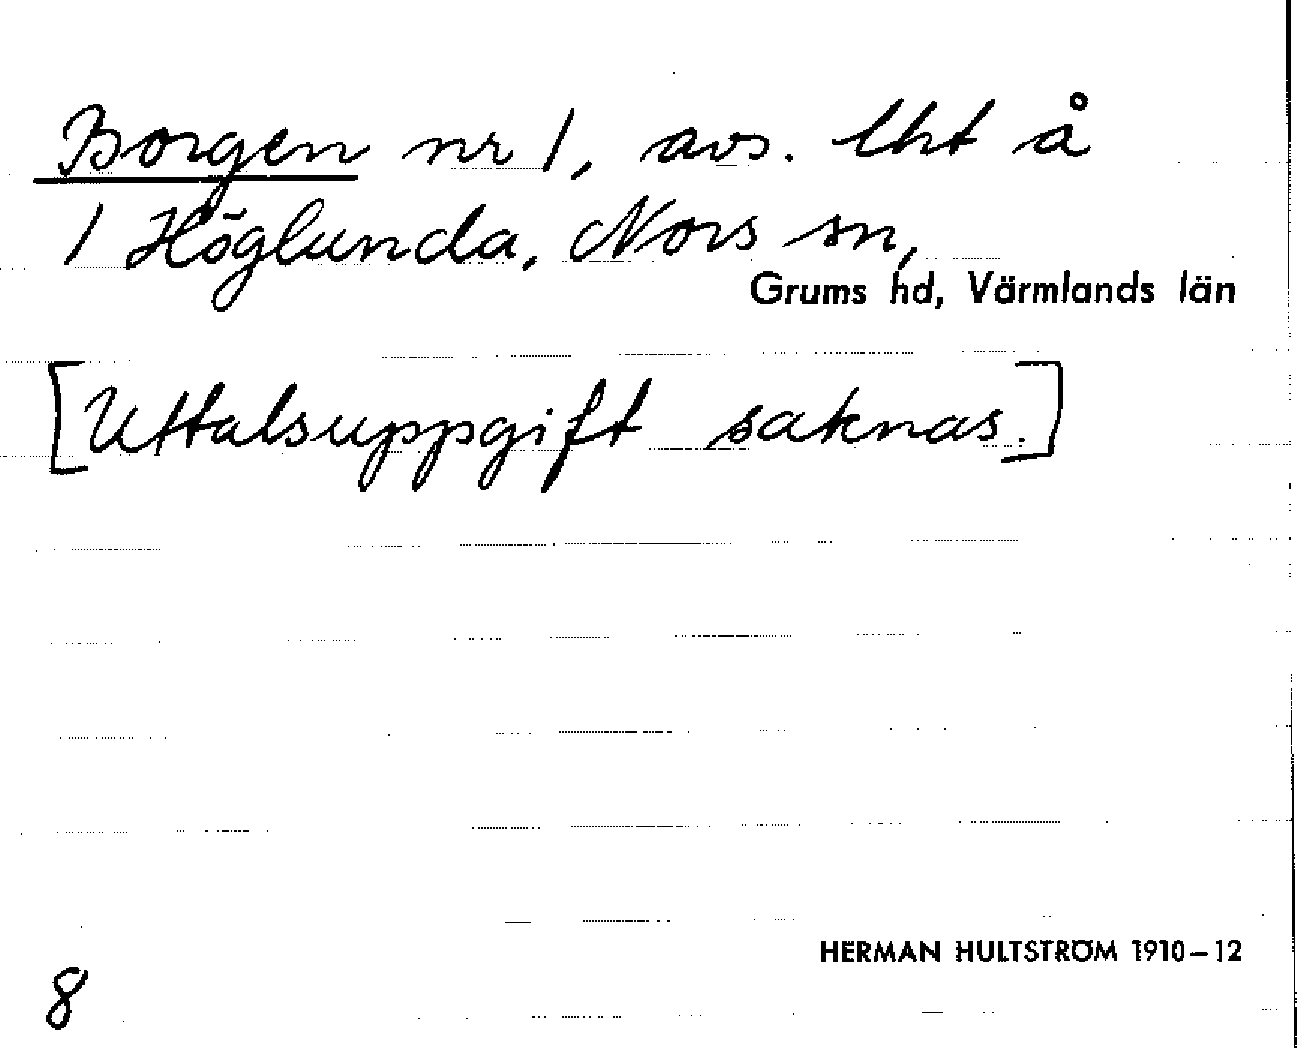 Borgen nr 1, avs. lht å
1 Höglunda, Nors sn,
Grums hd, Värmlands län
[Uttalsuppgift saknas.]
HERMAN HULTSTRÖM 1910–12
8